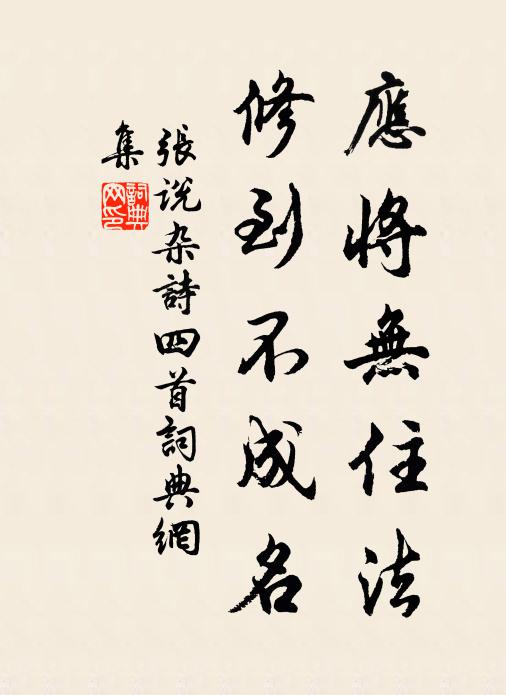 應將無住法
修到不成名
張說杂詩四首詞典網
集
詞典
网印